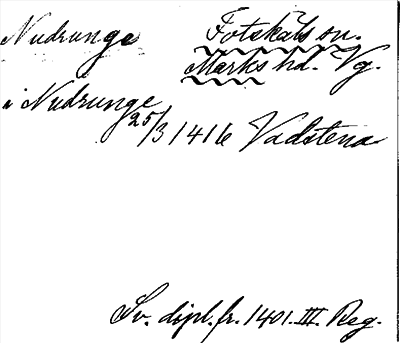 Nudrunge Fotskäls sn.
Marks hd. Vg.
i Nudrunge
25/3 1416 Vadstena
Sv. dipl. fr. 1401. III. Reg.